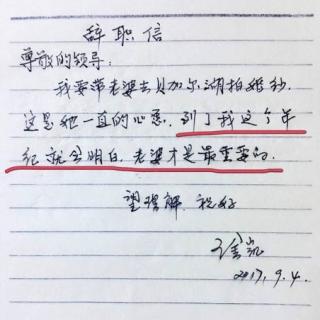 辞职信
尊敬的领导:
我要带老婆去贝加尔湖拍婚纱.
这是她一直的心愿,到了我这个年
纪就会明白,老婆才是最重要的.
望理解 祝好
凯
2017.9.4.